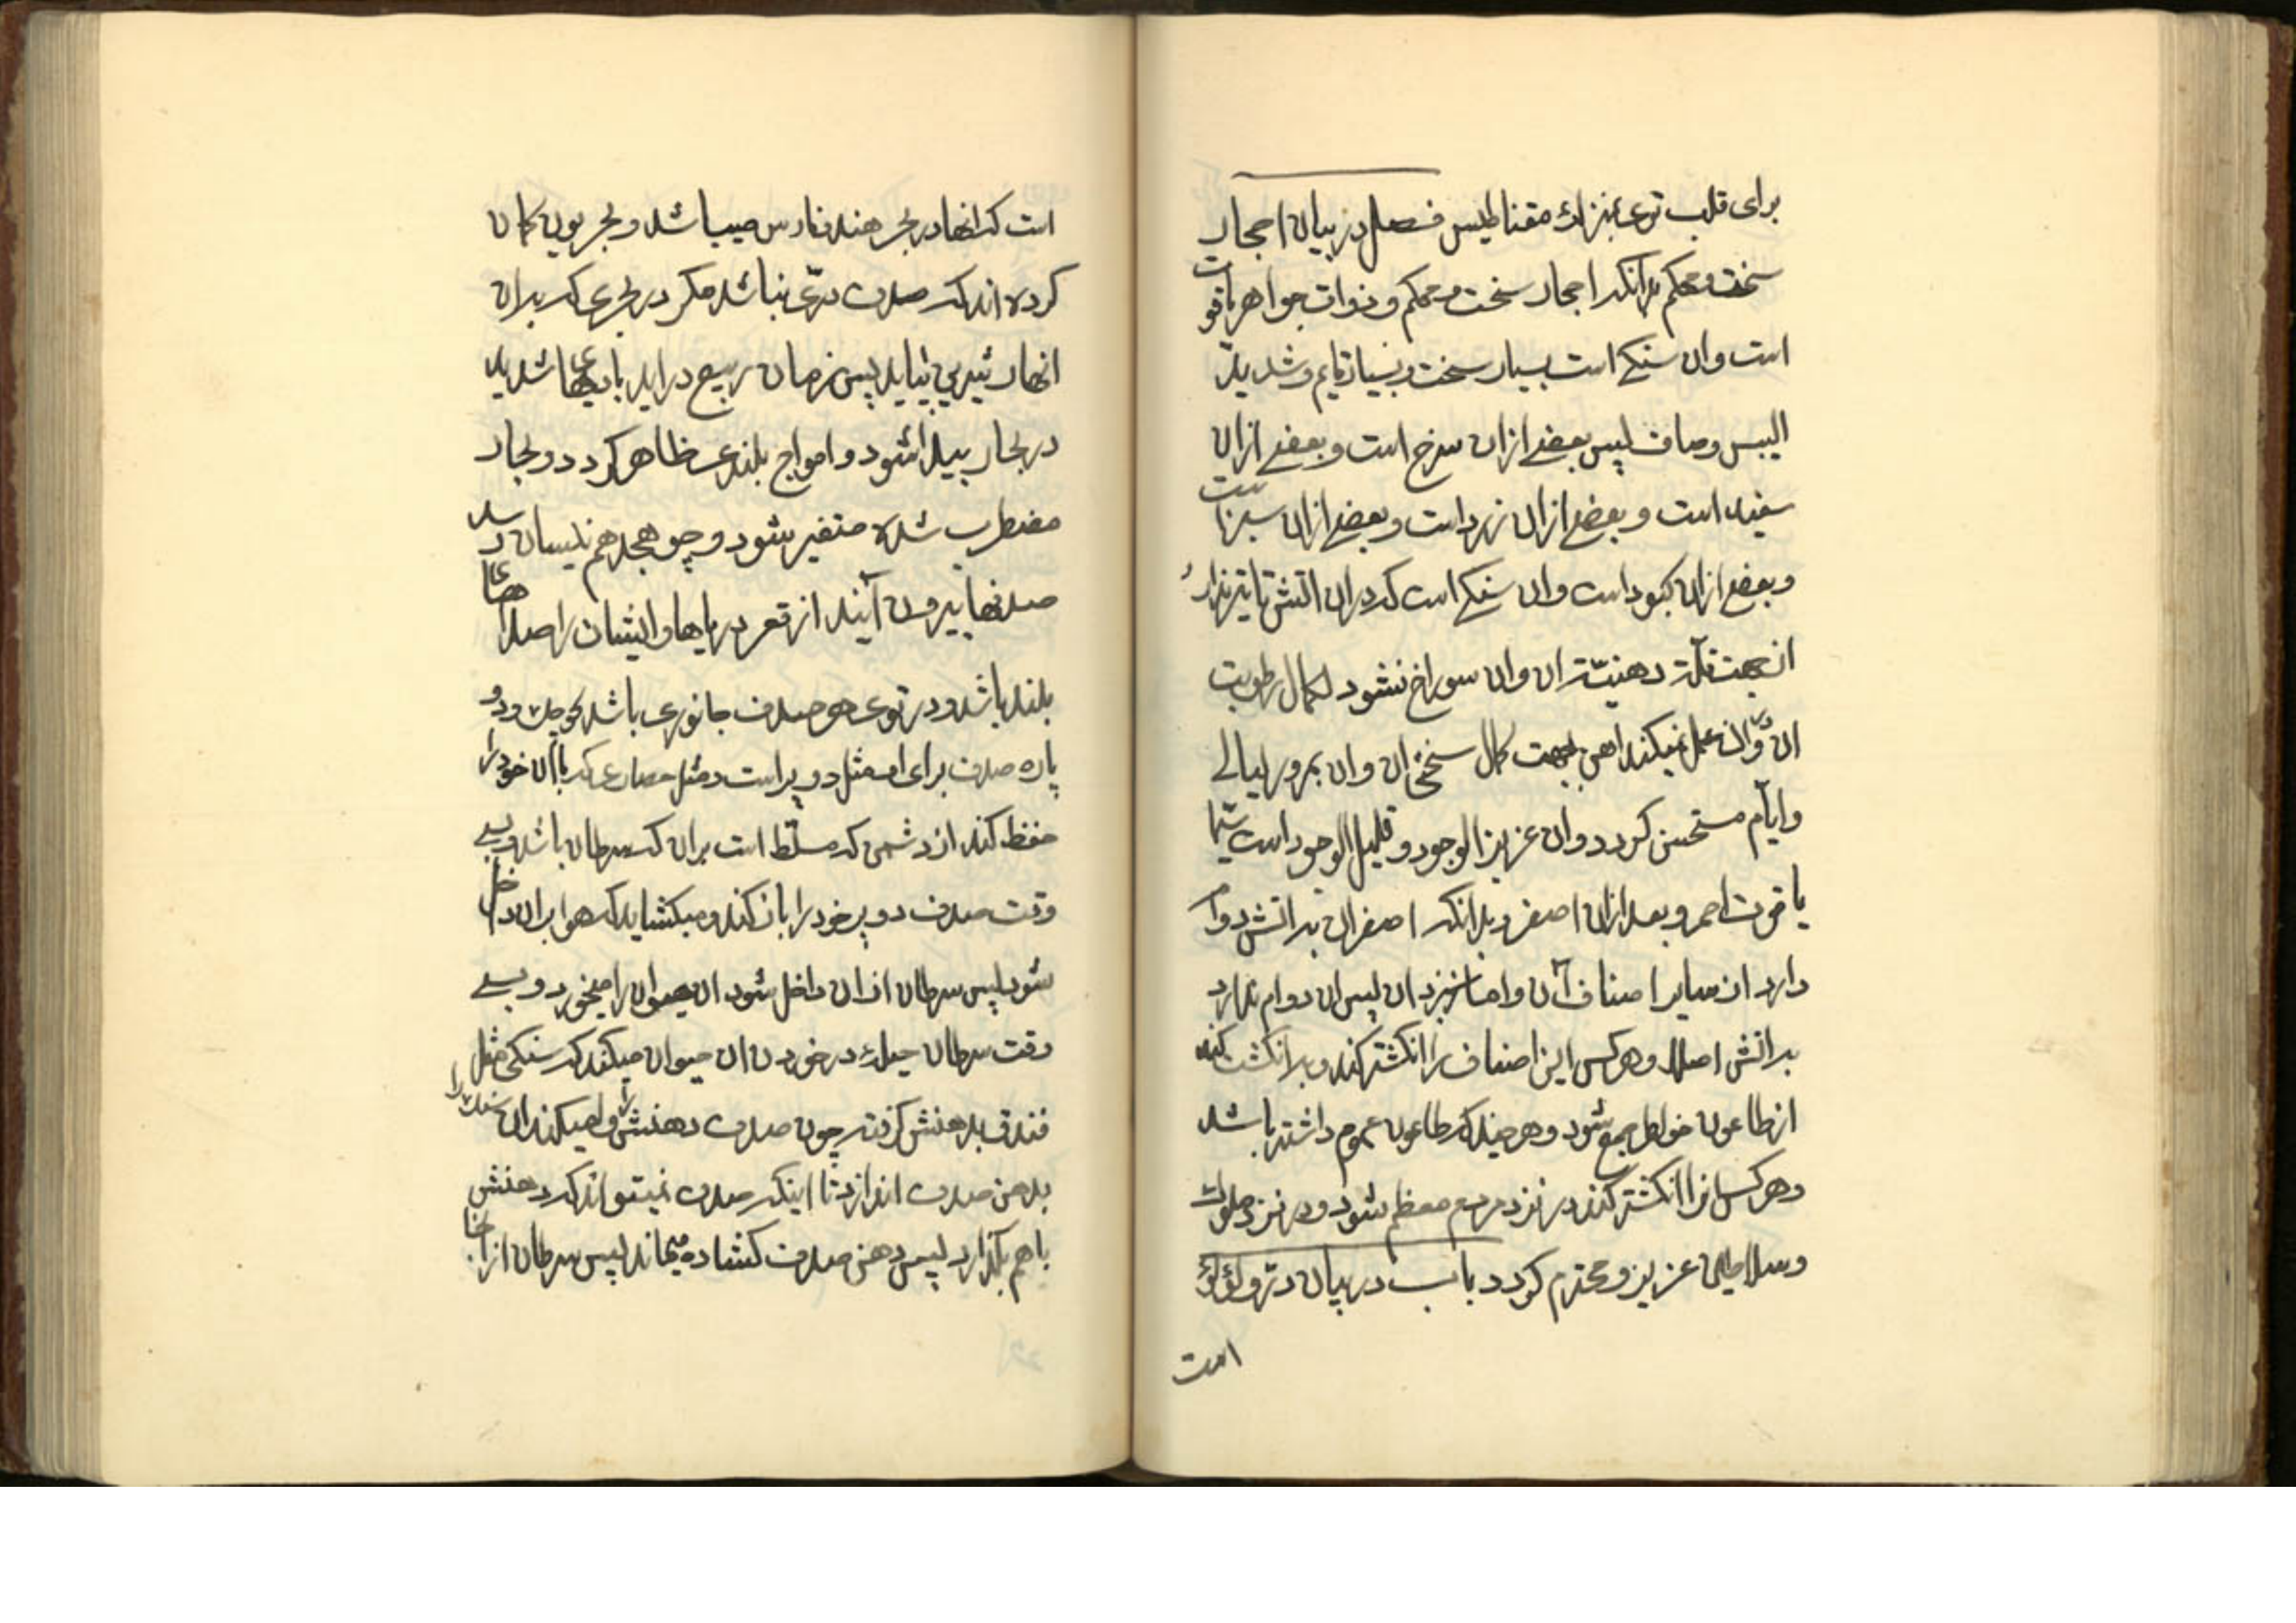 برای قلب توی بمنزلهٔ مقناطیس فصل در بیان احجار
سخت و محکم بدانکه احجار سخت و محکم و ذوات جواهر یاقوت
است وان سنکی است بسیار سخت و بسیار قایم و شدید
الیبس وصاف پس بعضی ازان سرخ است و بعضی ازان
سفید است و بعضی ازان زرد است و بعضی ازان سبز است
و بعضی ازان کبود است وان سنکی است که دران اتش تاثیر ندارد
از جهت قلة دهنیّت ان وان سوراخ نشود لکمال رطوبت
ان و دران عمل نمیکند اهن بجهت کمال سختی ان وان بمرور لیالی
وایّام مستحسن کردد وان عزیز الوجود و قلیل الوجود است سیّما
یاقوت احمر و بعد ازان اصفر و بدانکه اصفر ان بر اتش دوام
دارد از سایر اصناف آن واما سبز ان پس ان دوام ندارد
بر اتش اصلا و هرکس این اصناف را انکشتر کند و بر انکشت کند
از طاعون خواطر جمع شود و هر چند که طاعون عموم داشته باشد
و هرکس انرا انکشتر کند در نزد مردم معظم شود و در نزد ملوک
وسلاطین عزیز و محترم کردد باب در بیان درّ ولؤلؤ
است
است که انها در بحر هند و فارس میباشد و بحریون کمان
کرده اند که صدف درّی نباشد مکر در بحری که بران
انهار شیرین بیاید پس زمان ربیع دراید بادهای شدید
در بحار پیدا شود و امواج بلند ظاهر کردد و بحار
مضطرب شده متغیر شود و چو هجدهم نیسان رسد
صدفها بیرون آیند از قعر دریاها و ایشان را صداهای
بلند باشد و در توی هر صدف جانوری باشد کوچک و دو
پاره صدف برای او مثل دو پر است و مثل حصاری که باان خود را
حفظ کند از دشمنی که مسلّط است بران که سرطان باشد و بسی
وقت صدف دو پر خود را باز کند و میکشاید که هوا بران داخل
شود پس سرطان ازان داخل شود ان حیوان را میخورد و بسی
وقت سرطان حیلهٔ در خوردن ان حیوان میکند که سنکی مثل
فندق بدهنش کرفته چون صدف دهنش را وا میکند ان سنک را
بدهن صدف اندازد تا اینکه صدف نمیتواند که دهنش
باهم بکذارد پس دهن صدف کشاده میماند پس سرطان از انجا